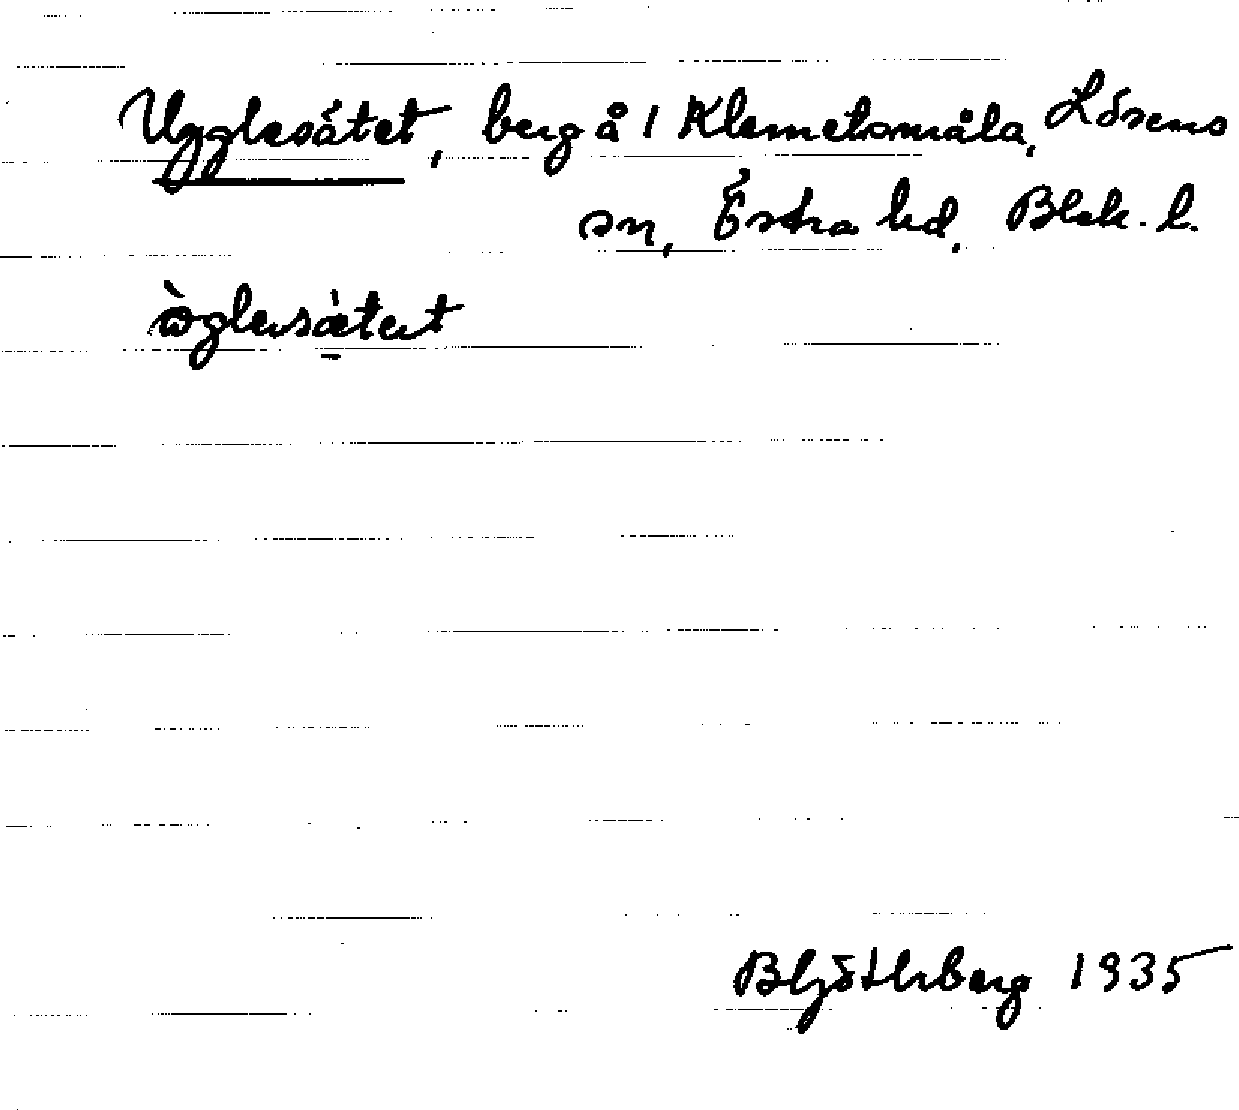 Ugglesätet, berg å 1 Klemetsmåla, Lösens
sn, Östra hd, Blek. l.
B Hjöthberg 1935